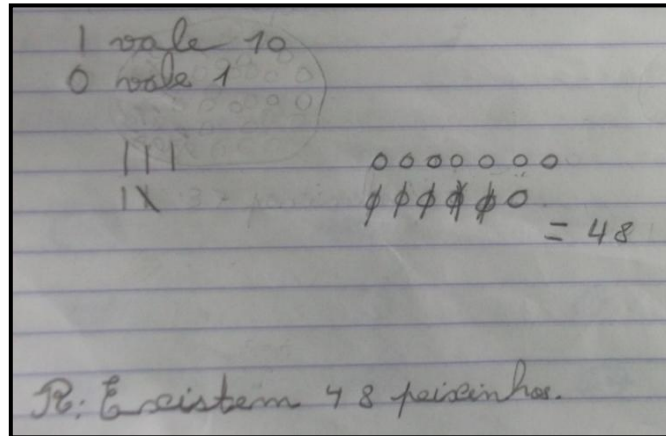 1 vale 10
0 vale 1
| | | 0 0 0 0 0 0 0
| \ 0 0 0 0 0 0
= 48
R: Existem 48 peixinhos.